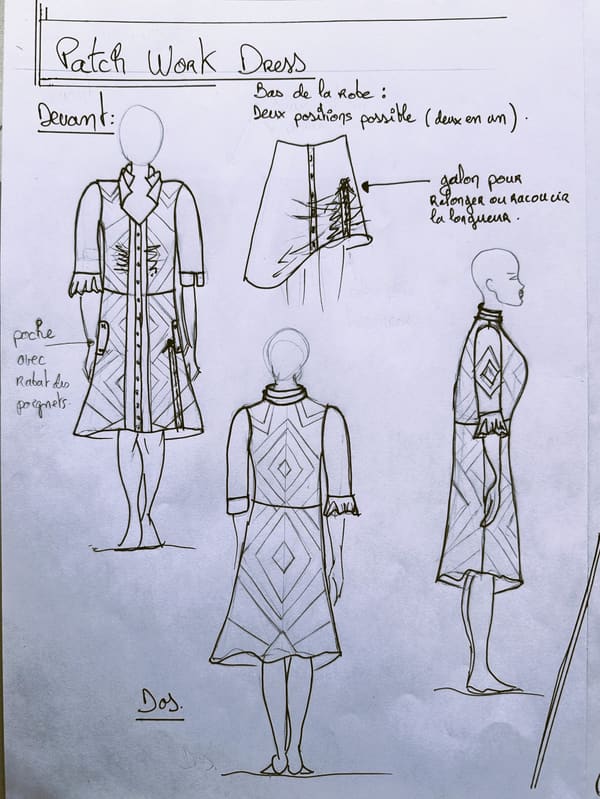 Patch Work Dress
Devant:
Bas de la robe :
Deux positions possible (deux en un).
galon pour
Ralonger ou racoucir
la longueur.
poche
avec
Rabat des
poignets.
Dos.